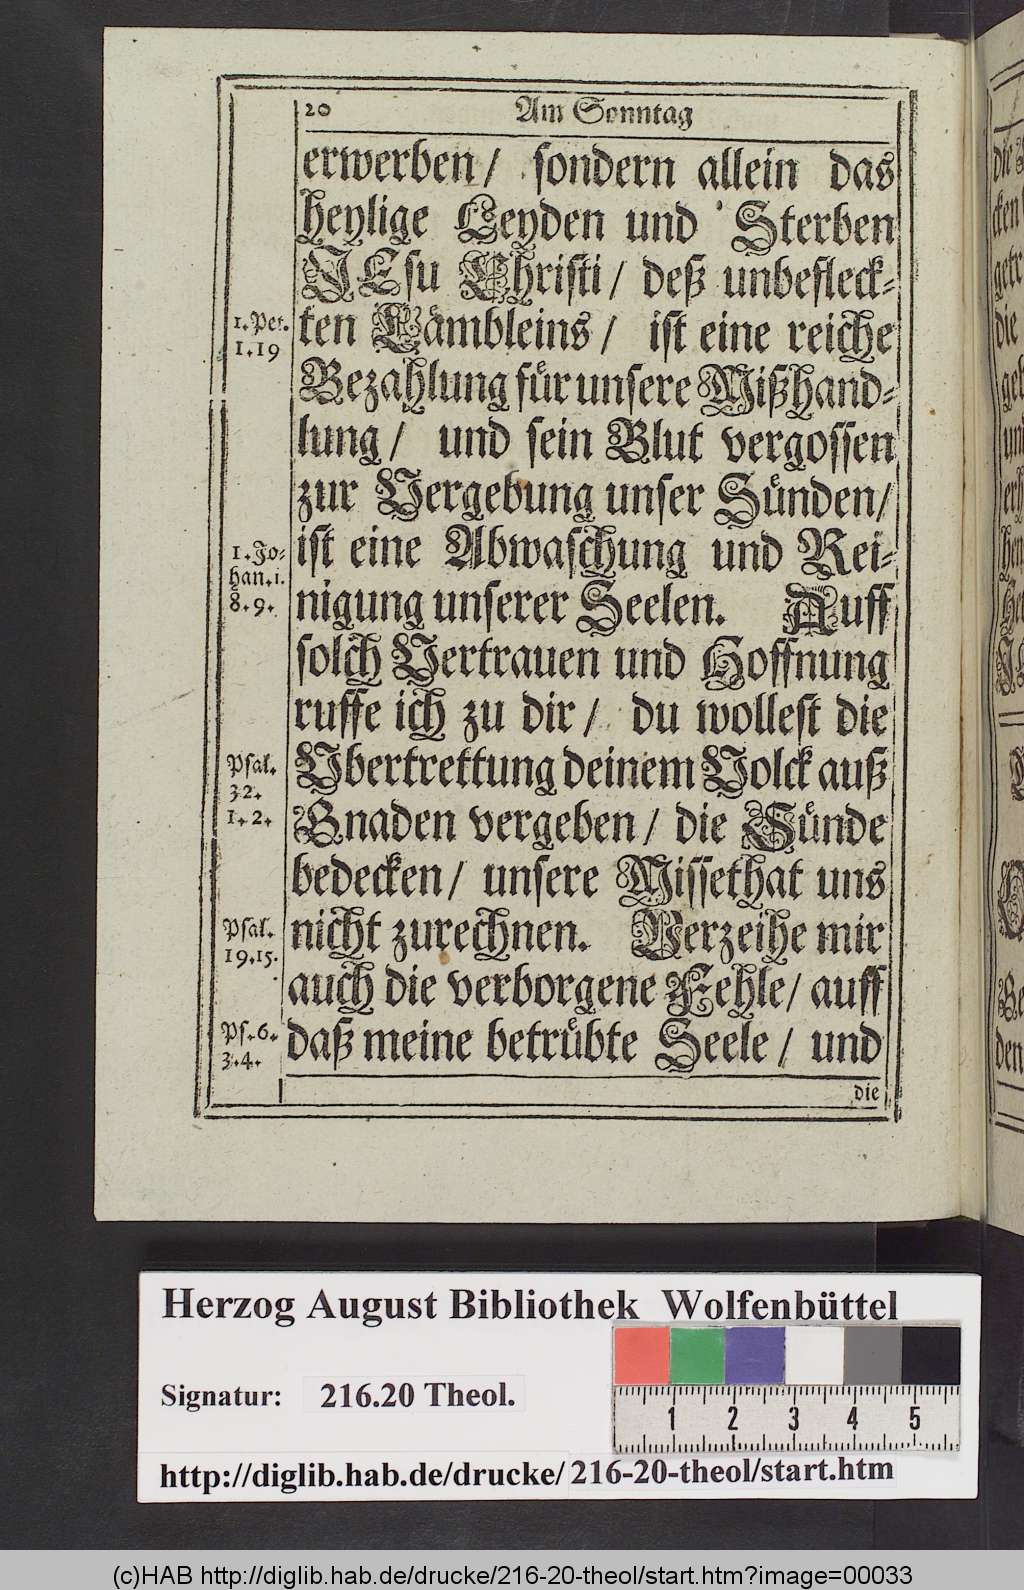 20 Am Sonntag
erwerben / sondern allein das
heylige Leyden und Sterben
JEsu Christi / deß unbefleck-
1. Pet. 1. 19
ten Lämbleins / ist eine reiche
Bezahlung für unsere Mißhand-
lung / und sein Blut vergossen
zur Vergebung unser Sünden /
1. Jo-
han. 1.
8. 9.
ist eine Abwaschung und Rei-
nigung unserer Seelen. Auff
solch Vertrauen und Hoffnung
ruffe ich zu dir / du wollest die
Psal.
32.
1. 2.
Vbertrettung deinem Volck auß
Gnaden vergeben / die Sünde
bedecken / unsere Missethat uns
Psal.
19. 15.
nicht zurechnen. Verzeihe mir
auch die verborgene Fehle / auff
Ps. 6.
3. 4.
daß meine betrübte Seele / und
die
Herzog August Bibliothek Wolfenbüttel
Signatur: 216.20 Theol.
1 2 3 4 5
http://diglib.hab.de/drucke/216-20-theol/start.htm
(c)HAB http://diglib.hab.de/drucke/216-20-theol/start.htm?image=00033